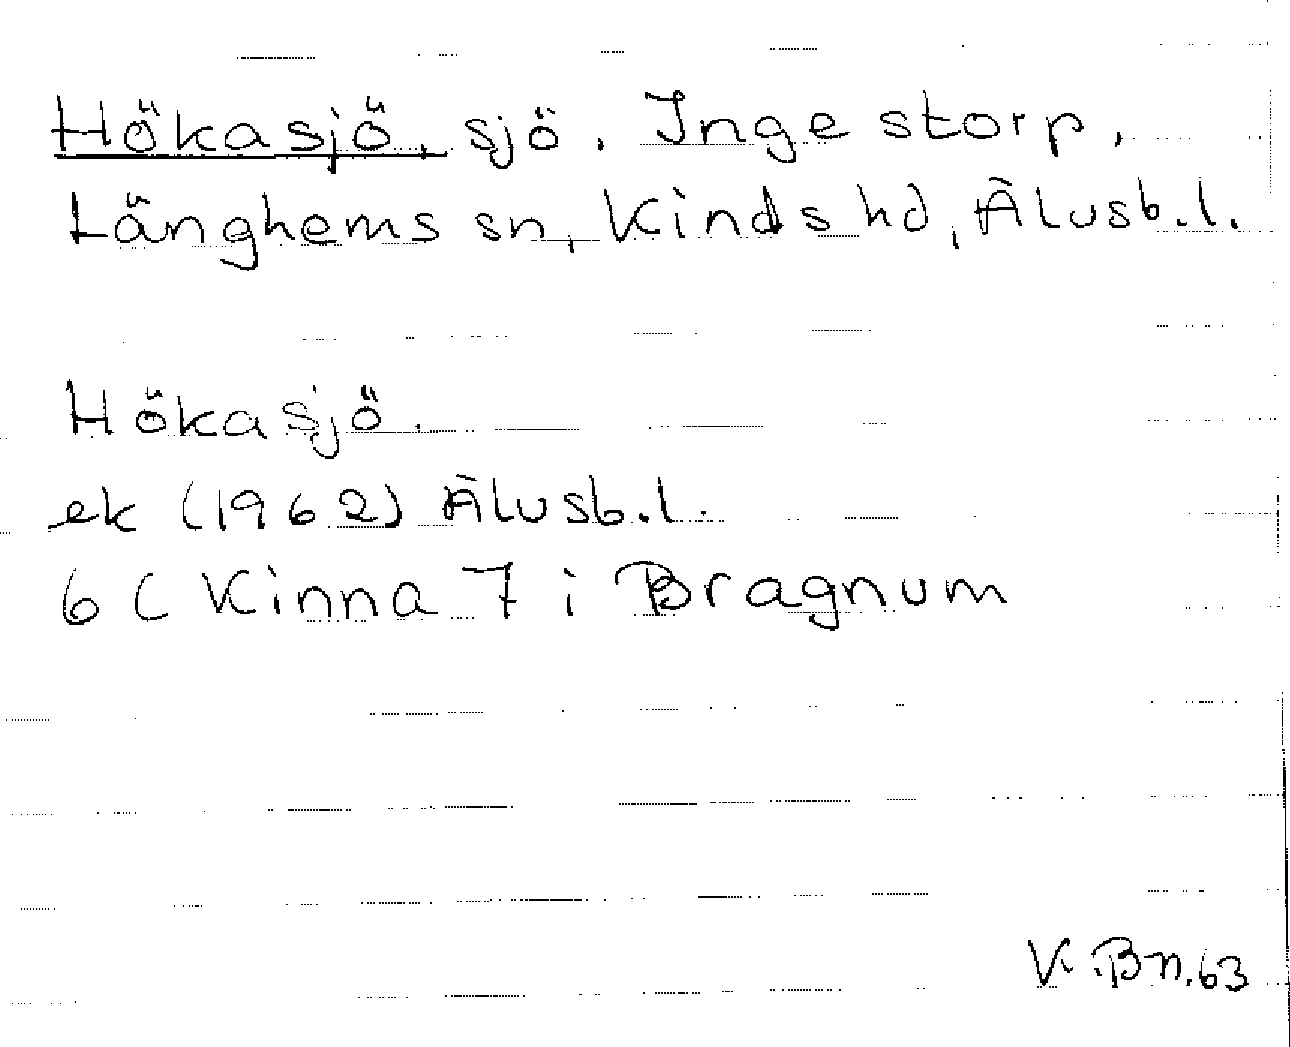 Hökasjö, sjö. Ingestorp,
Länghems sn, Kinds hd, Älvsb.l.
Hökasjö.
ek (1962) Älvsb.l.
6C Kinna 7 i Bragnum
K.Bn.63